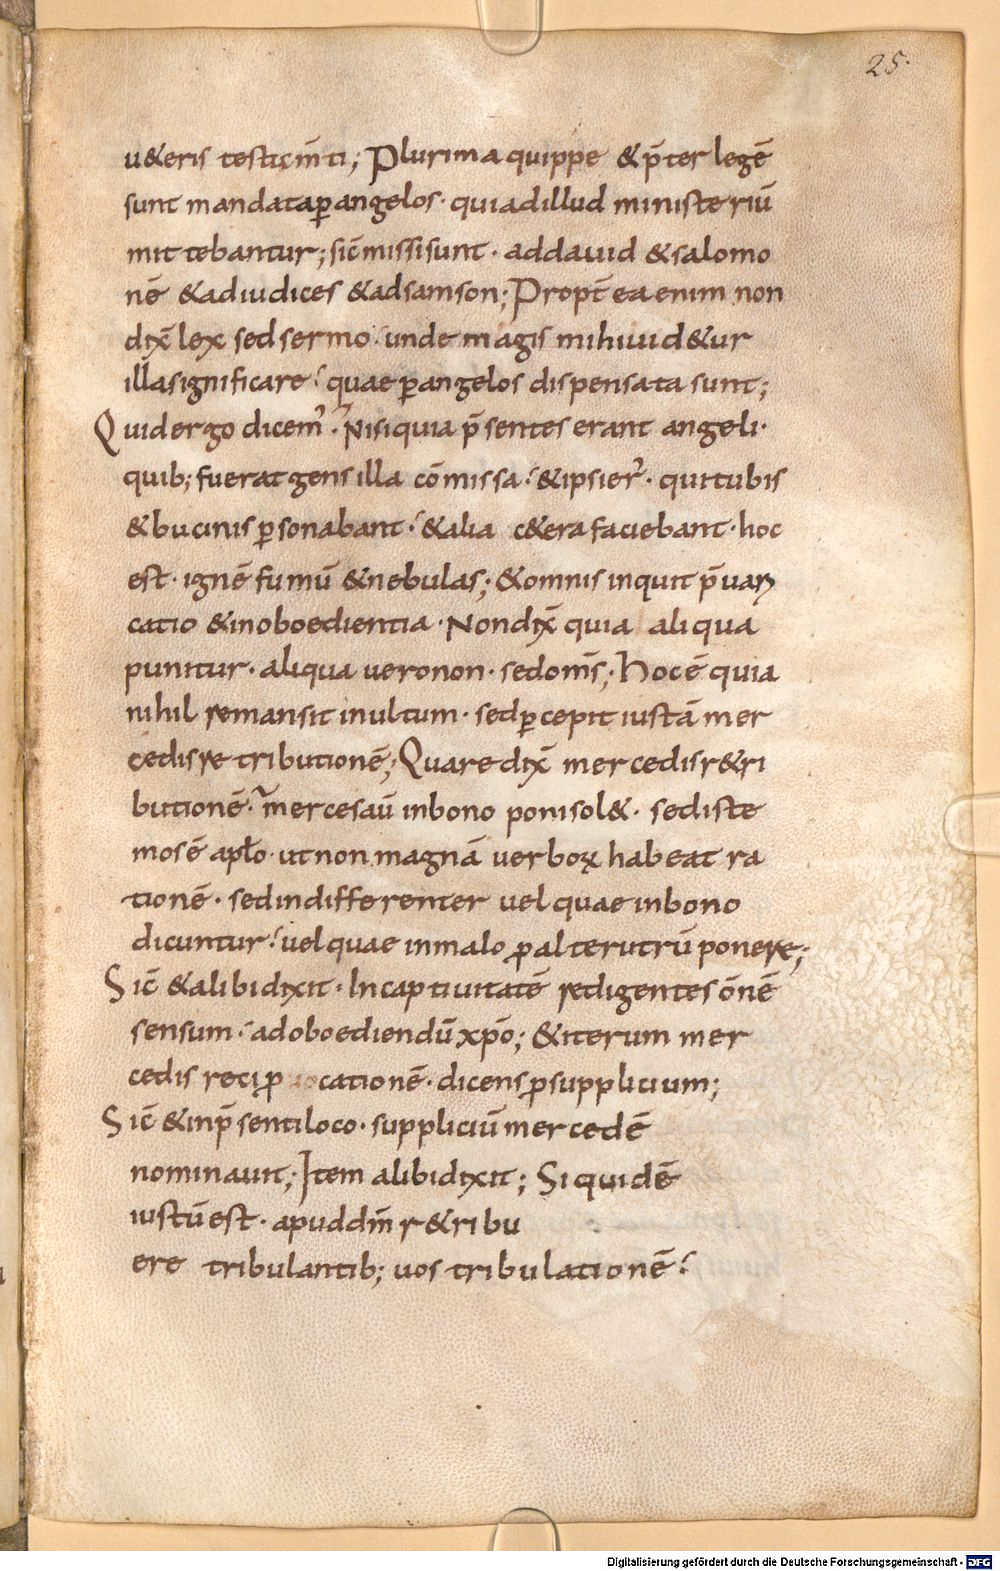 25.
u&eris testam̄ti; Plurima quippe & p̄ter legē
sunt mandata ꝑ angelos· qui ad illud ministeriū
mittebantur; sic̄ missi sunt· ad dauid & salomo
nē & ad iudices & ad samson; Propt̄ ea enim non
dix̄ lex sed sermo· unde magis mihi uid&ur
illa significare· quae ꝑ angelos dispensata sunt;
Quid ergo dicem᾽· Nisi quia p̄sentes erant angeli·
quib; fuerat gens illa cōmissa· & ipsi er᾽· qui tubis
& bucinis ꝑsonabant· & alia c&era faciebant· hoc
est· ignē fumū & nebulas; & omnis inquit p̄uari
catio & inoboedientia· Non dix̄ quia aliqua
punitur· aliqua uero non· sed om̄s; Hoc ē quia
nihil remansit inultum· sed ꝑcepit iustā mer
cedis retributionē; Quare dix̄ mercedis r&ri
butionē· merces aū in bono poni sol&· sed iste
mos ē apło· ut non magnā uerboꝝ habeat ra
tionē· sed indifferenter uel quae in bono
dicuntur· uel quae in malo ꝓ alterutrū ponere;
Sic̄ & alibi dixit· In captiuitatē redigentes ōnē
sensum· ad oboediendū xp̄o; & iterum mer
cedis reciꝓ cationē· dicens ꝓ supplicium;
Sic̄ & in p̄senti loco· suppliciū mercedē
nominauit; Item alibi dixit; Si quidē
iustū est· apud dm̄ r&ribu
ere tribulantib; uos tribulationē·
Digitalisierung gefördert durch die Deutsche Forschungsgemeinschaft - DFG